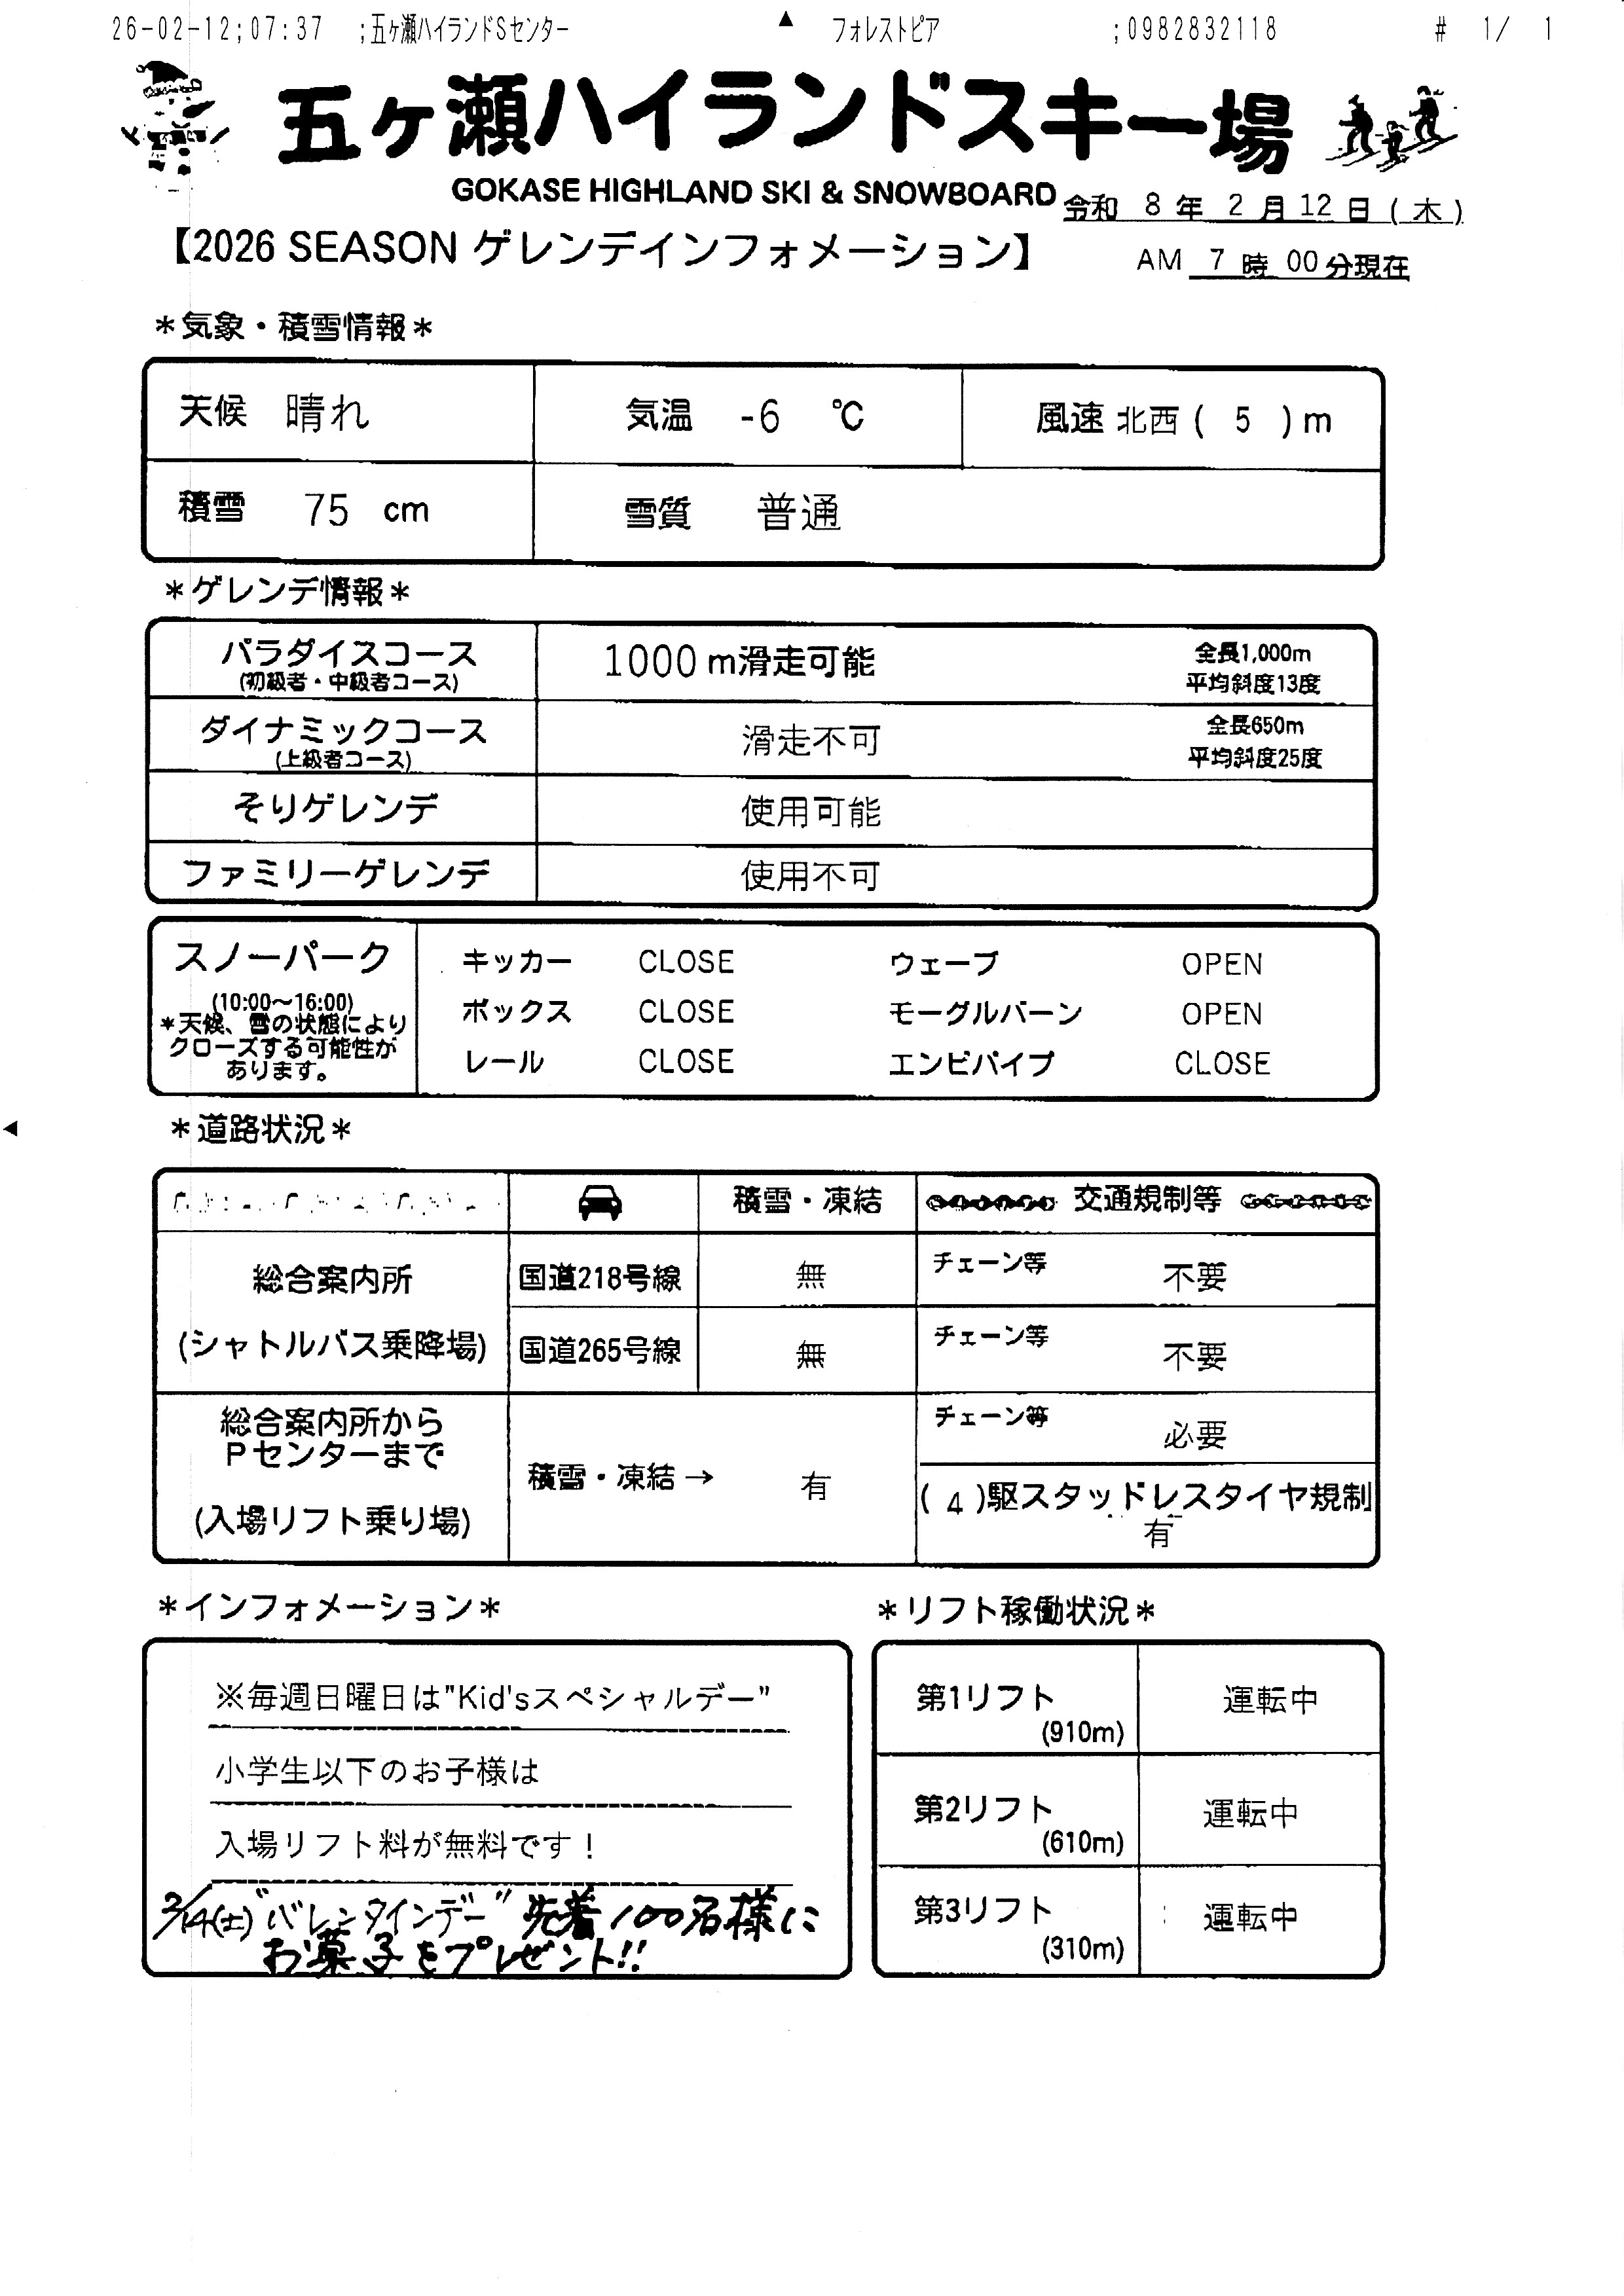 26-02-12;07:37 ;五ヶ瀬ハイランドSセンター フォレストピア ;0982832118 # 1/ 1
五ヶ瀬ハイランドスキー場
GOKASE HIGHLAND SKI & SNOWBOARD
令和 8 年 2 月 12 日 ( 木 )
【2026 SEASON ゲレンデインフォメーション】
AM 7 時 00 分現在
*気象・積雪情報*
天候 晴れ 気温 -6 ℃ 風速 北西 ( 5 ) m
積雪 75 cm 雪質 普通
*ゲレンデ情報*
パラダイスコース 1000 m滑走可能 全長1,000m
(初級者・中級者コース) 平均斜度13度
ダイナミックコース 滑走不可 全長650m
(上級者コース) 平均斜度25度
そりゲレンデ 使用可能
ファミリーゲレンデ 使用不可
スノーパーク
(10:00～16:00)
*天候、雪の状態により
クローズする可能性が
あります。
キッカー CLOSE ウェーブ OPEN
ボックス CLOSE モーグルバーン OPEN
レール CLOSE エンピパイプ CLOSE
*道路状況*
積雪・凍結 交通規制等
総合案内所
(シャトルバス乗降場)
国道218号線 無 チェーン等 不要
国道265号線 無 チェーン等 不要
総合案内所から
Pセンターまで
(入場リフト乗り場)
積雪・凍結→ 有
チェーン等 必要
( 4 )駆スタッドレスタイヤ規制
有
*インフォメーション*
※毎週日曜日は"Kid'sスペシャルデー"
小学生以下のお子様は
入場リフト料が無料です！
2/14(土)"バレンタインデー" 先着100名様に
お菓子をプレゼント!!
*リフト稼働状況*
第1リフト 運転中
(910m)
第2リフト 運転中
(610m)
第3リフト 運転中
(310m)